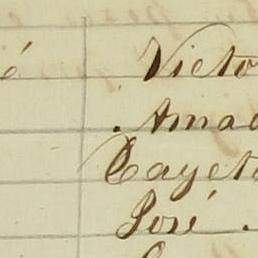 é Victo
Amad
Cayet
José